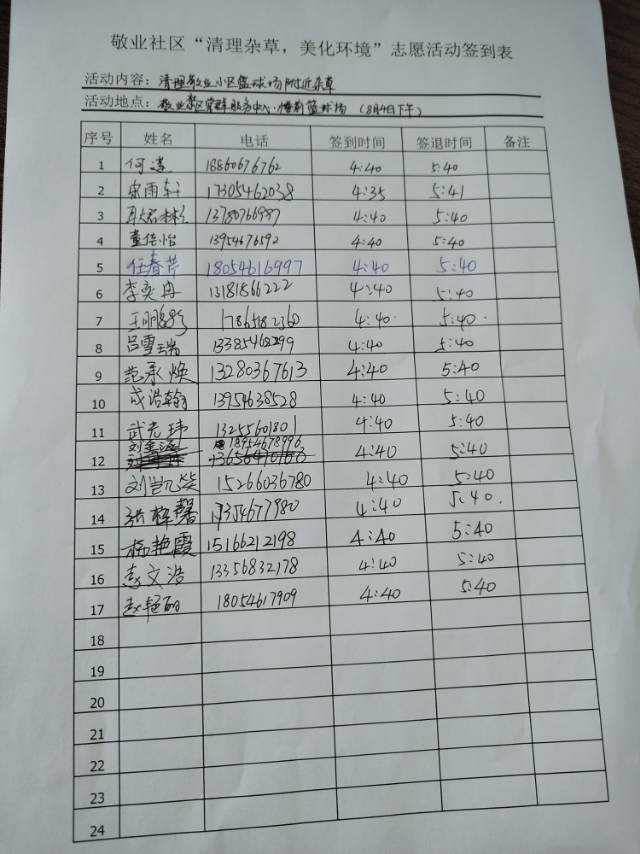 敬业社区“清理杂草，美化环境”志愿活动签到表
活动内容：清理敬业小区篮球场附近杂草
活动地点：敬业社区党群服务中心 篮球场（8月4日下午）
序号 姓名 电话 签到时间 签退时间 备注
1 何 18860676762 4:40 5:40
2 雨轩 17305462038 4:35 5:41
3 13780766987 4:40 5:40
4 董信怡 13954676592 4:40 5:40
5 任春芹 18054616997 4:40 5:40
6 李奕冉 13181866222 4:40 5:40
7 王鹏 1786582360 4:40 5:40
8 吕雪瑞 13385468299 4:40 5:40
9 范承焕 13280367613 4:40 5:40
10 成浩翰 13954638528 4:40 5:40
11 武光玮 13255601801 4:40 5:40
12 18954678996 4:40 5:40
13 刘凯 15266036780 4:40 5:40
14 张梓馨 4:40 5:40
15 杨艳霞 15166212198 4:40 5:40
16 赵文浩 13356832178 4:40 5:40
17 赵艳丽 18054617909 4:40 5:40
18
19
20
21
22
23
24